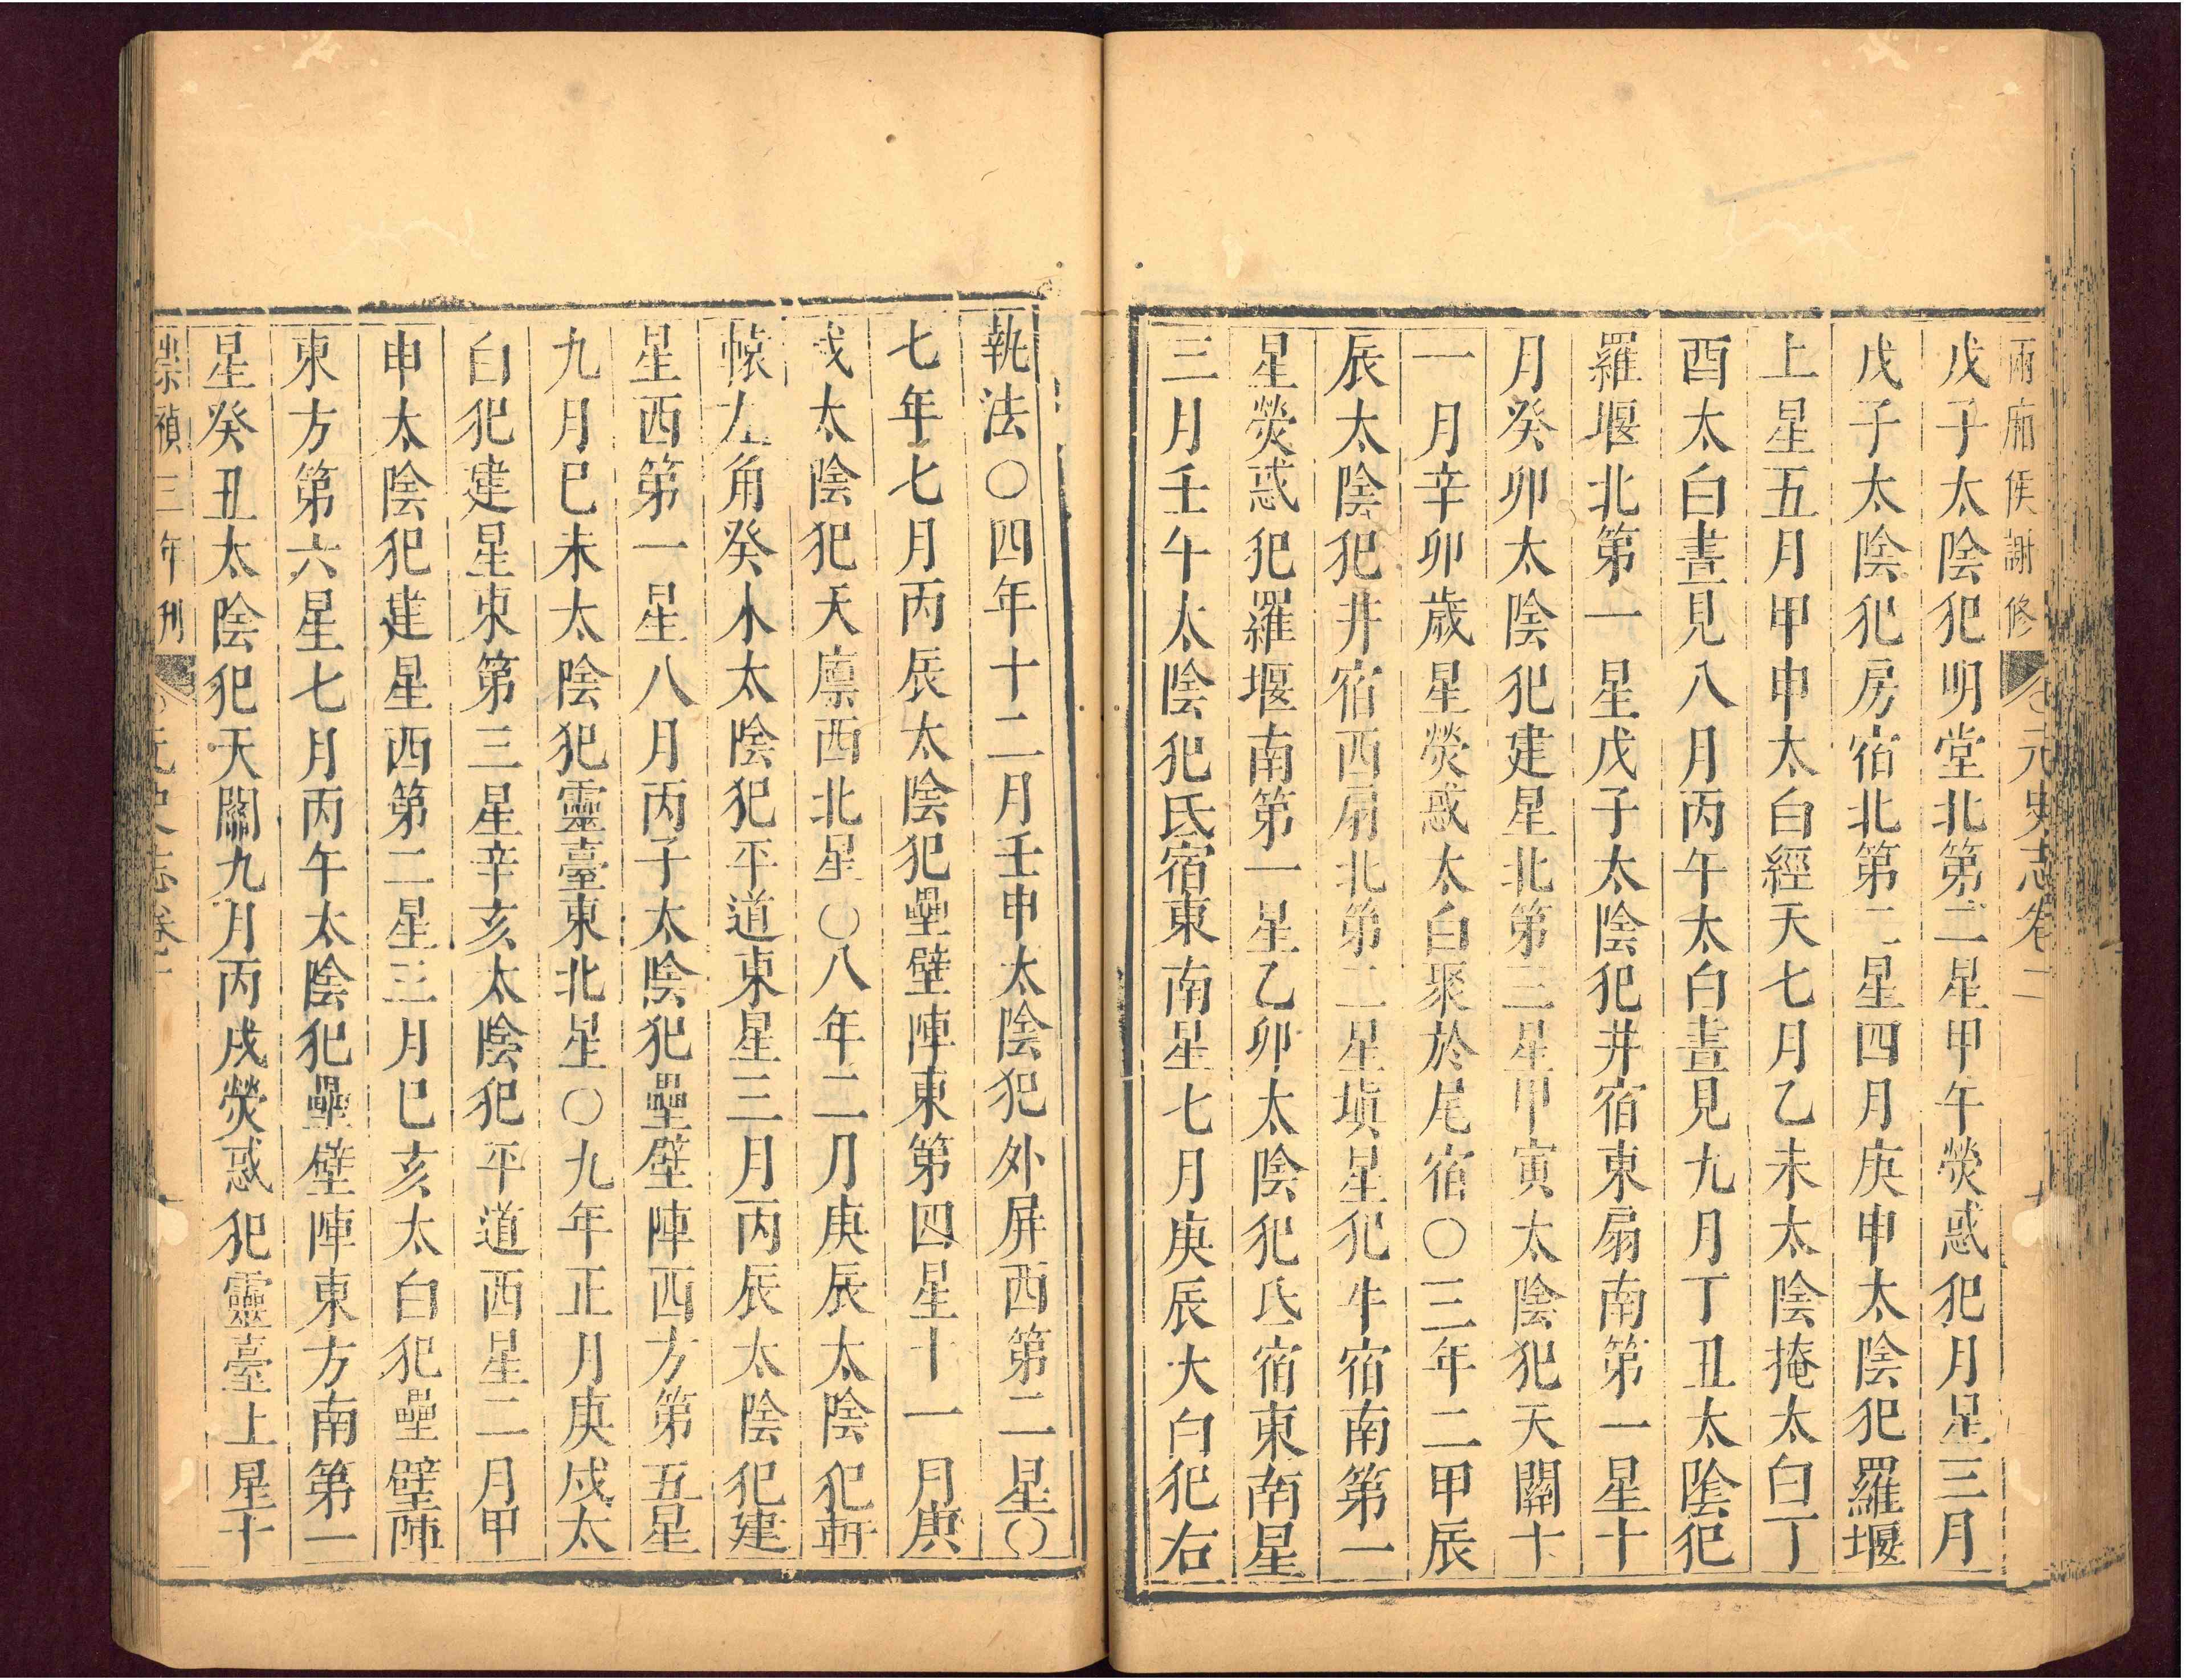 兩廂侯謝修 元史志卷二
戊子太陰犯明堂北第二星甲午熒惑犯月星三月
戊子太陰犯房宿北第二星四月庚申太陰犯羅堰
上星五月甲申太白經天七月乙未太陰掩太白丁
酉太白晝見八月丙午太白晝見九月丁丑太陰犯
羅堰北第一星戊子太陰犯井宿東扇南第一星十
月癸卯太陰犯建星北第三星甲寅太陰犯天關十
一月辛卯歲星熒惑太白聚於尾宿〇三年二甲辰
辰太陰犯井宿西扇北第二星塡星犯牛宿南第一
星熒惑犯羅堰南第一星乙卯太陰犯氐宿東南星
三月壬午太陰犯氐宿東南星七月庚辰大白犯右
執法〇四年十二月壬申太陰犯外屏西第二星〇
七年七月丙辰太陰犯壘壁陣東第四星十一月庚
戌太陰犯天廪西北星〇八年二月庚辰太陰犯軒
轅左角癸木太陰犯平道東星三月丙辰太陰犯建
星西第一星八月丙子太陰犯壘壁陣西方第五星
九月巳未太陰犯靈臺東北星〇九年正月庚戌太
白犯建星東第三星辛亥太陰犯平道西星二月甲
申太陰犯建星西第二星三月巳亥太白犯壘壁陣
東方第六星七月丙午太陰犯壘壁陣東方南第一
星癸丑太陰犯天關九月丙戌熒惑犯靈臺上星十
崇禎三年刊 元史志卷二